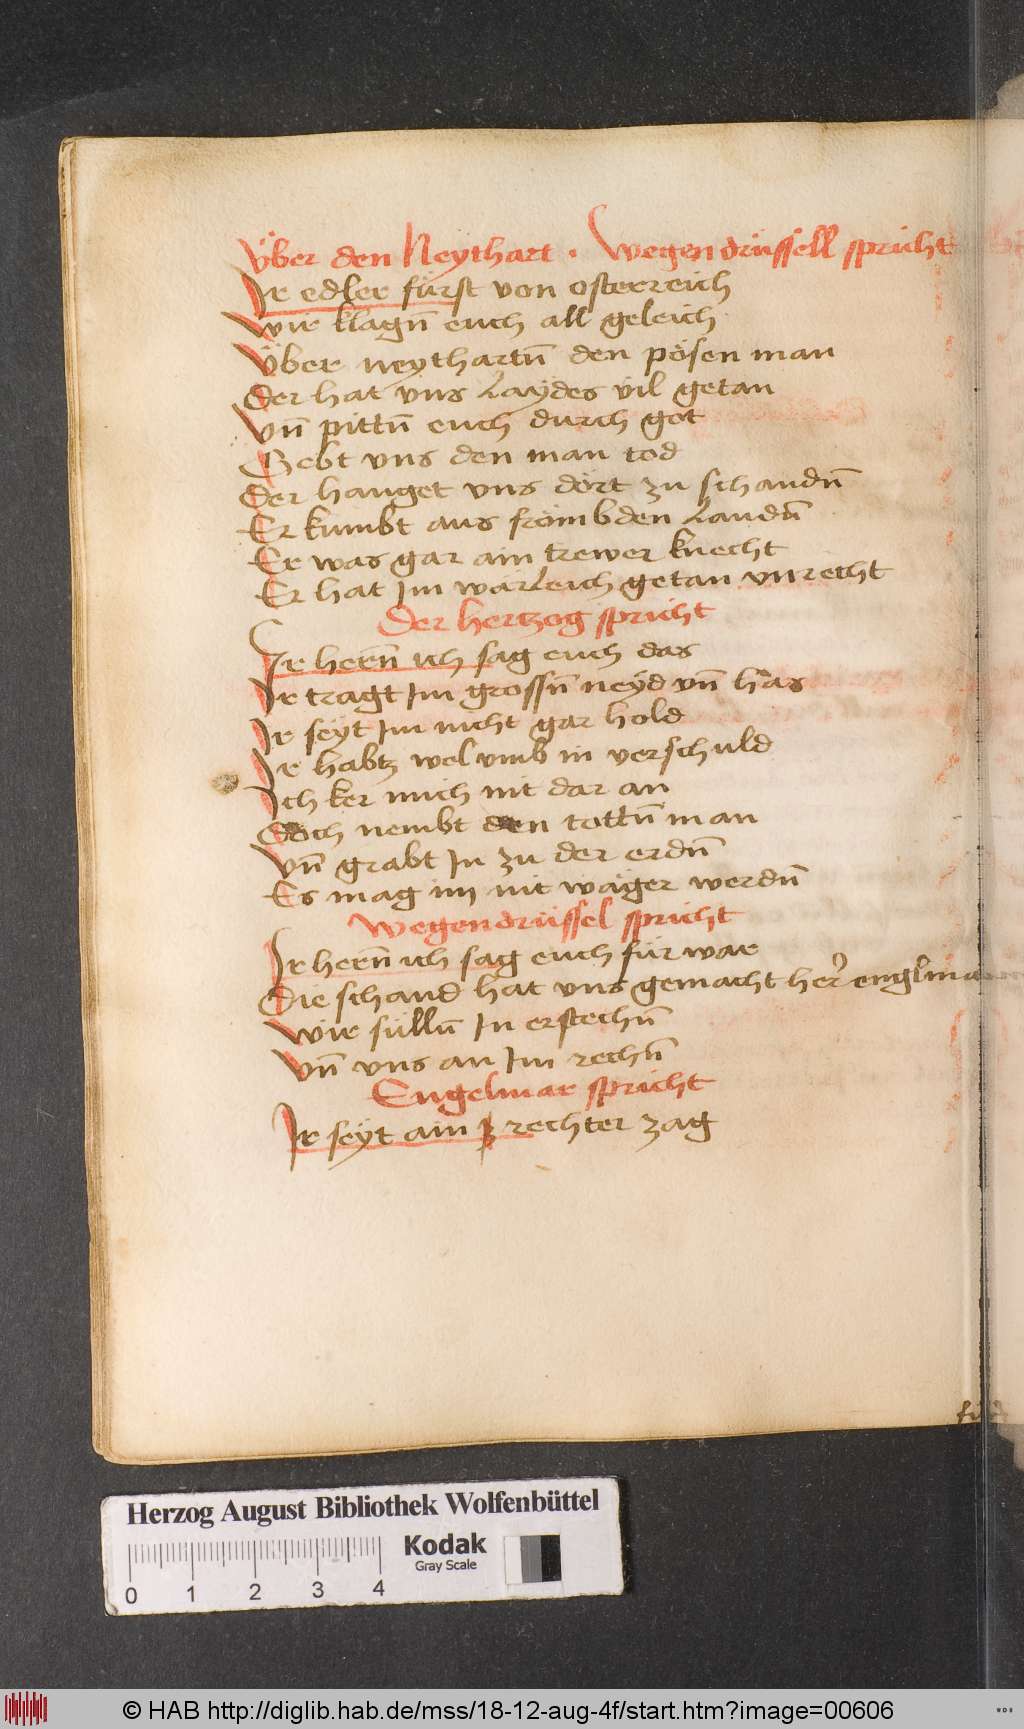 Über den Neythart · Wegendrüssell spricht
Ir edler fürst von osterreich
Wir klagn̄ euch all geleich
Über neythartn̄ den pösen man
Der hat vns Laydes vil getan
Vn̄ pittn̄ euch durch got
Gebt vns den man tod
Der hanget vns dört zu schandn̄
Er kumbt aus frömbden Landn̄
Er was gar ain trewer knecht
Er hat Im wärleich getan vnrecht
Der hertzog spricht
Ir hern̄ ich sag euch das
Ir tragt Im grossn̄ neyd vn̄ has
Ir seyt Im nicht gar hold
Ir habtz wol vmb in verschuld
Ich ker mich nit dar an
Doch nembt den tottn̄ man
Vn̄ grabt In zu der erdn̄
Es mag im nit wäger werdn̄
Wegendrüssel spricht
Ir hern̄ ich sag euch für war
Die schand hat vns gemacht her
Wir sülln̄ In erstechn̄
Vn̄ vns an Im rechn̄
Engelmar spricht
Ir seyt ain rechter zag
Herzog August Bibliothek Wolfenbüttel
Kodak
Gray Scale
0 1 2 3 4
© HAB http://diglib.hab.de/mss/18-12-aug-4f/start.htm?image=00606